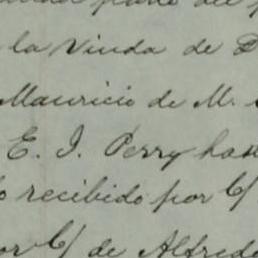 parte del
la Viuda de D
Mauricio de M.
E. J. Perry has
recibido por C/
or C/ de Alfredo